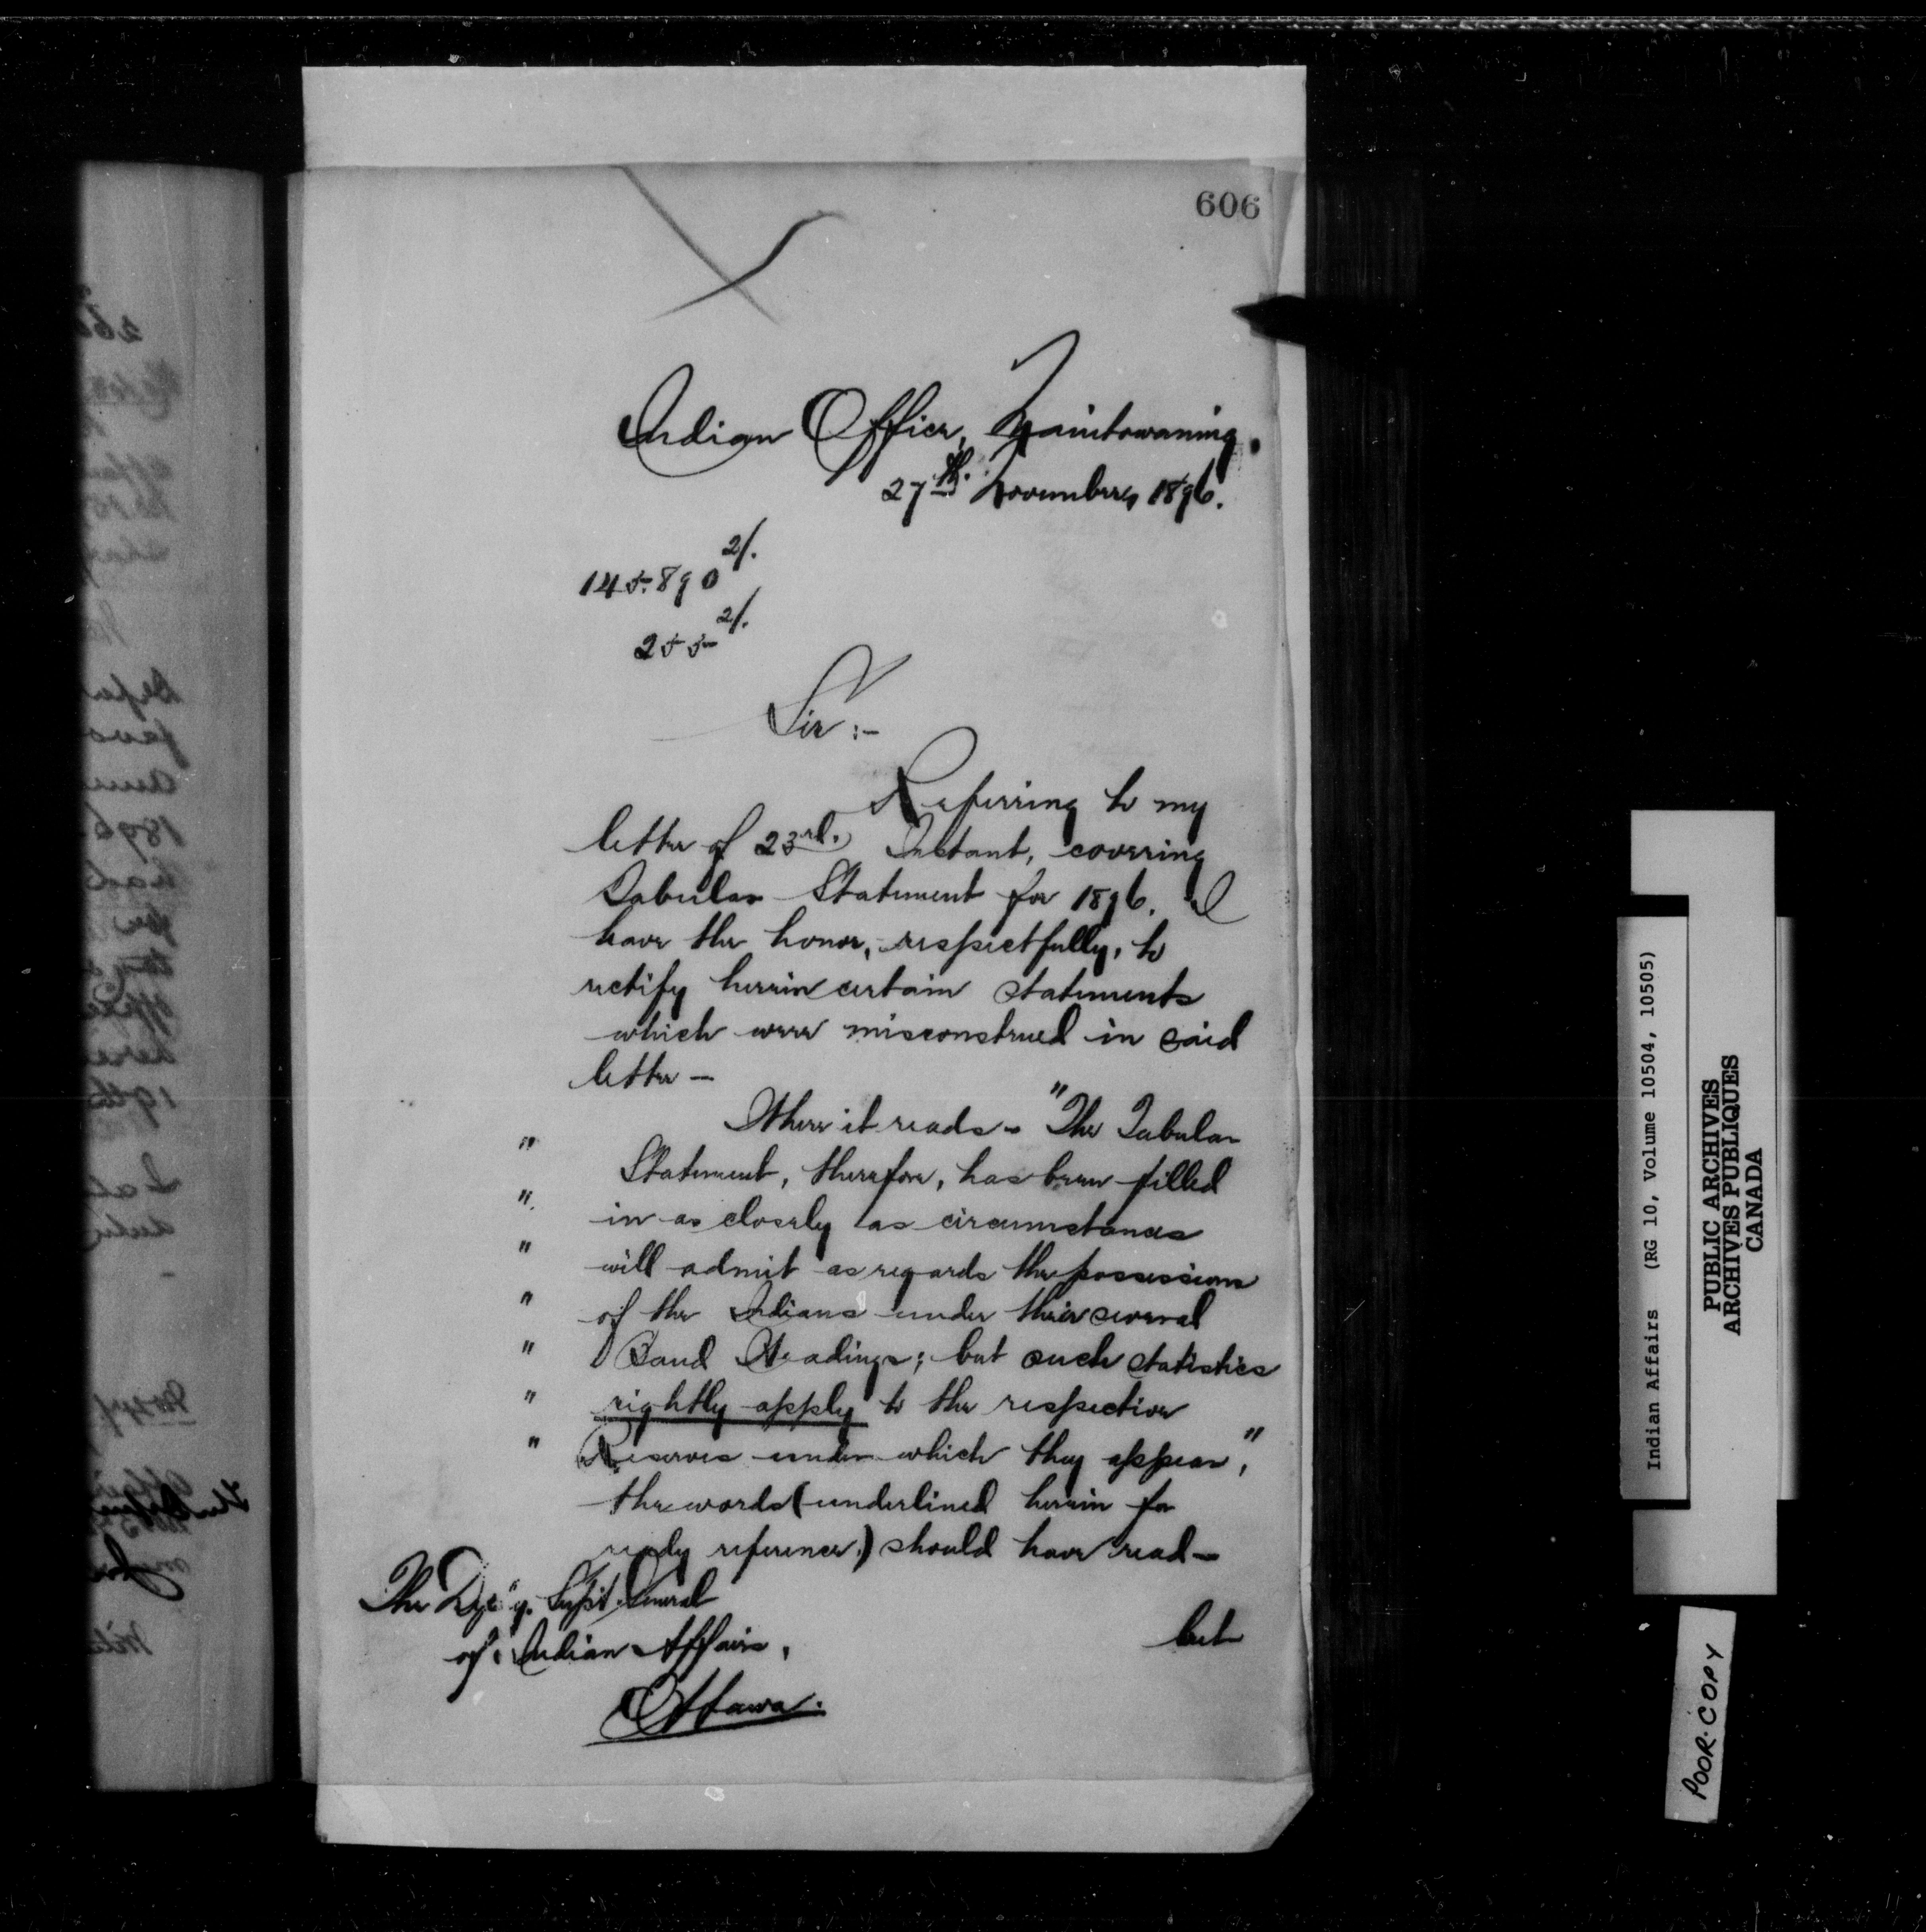 606
Indian Office, Manitowaning.
27th. November, 1896.
145.890 2/.
255 2/.
Sir :-
Referring to my
letter of 23rd. Instant, covering
Tabular Statement for 1896. I
have the honor, respectfully, to
rectify herein certain statements
which were misconstrued in said
letter —
Where it reads - "The Tabular
" Statement, therefore, has been filled
" in as closely as circumstances
" will admit as regards the possessions
" of the Indians under their several
" Band Headings; but such statistics
" rightly apply to the respective
" Reserves under which they appear,"
the words (underlined herein for
ready reference,) should have read —
The Dep'y. Supt. General
of Indian Affairs,
Ottawa.
but
Indian Affairs (RG 10, Volume 10504, 10505)
PUBLIC ARCHIVES
ARCHIVES PUBLIQUES
CANADA
POOR COPY